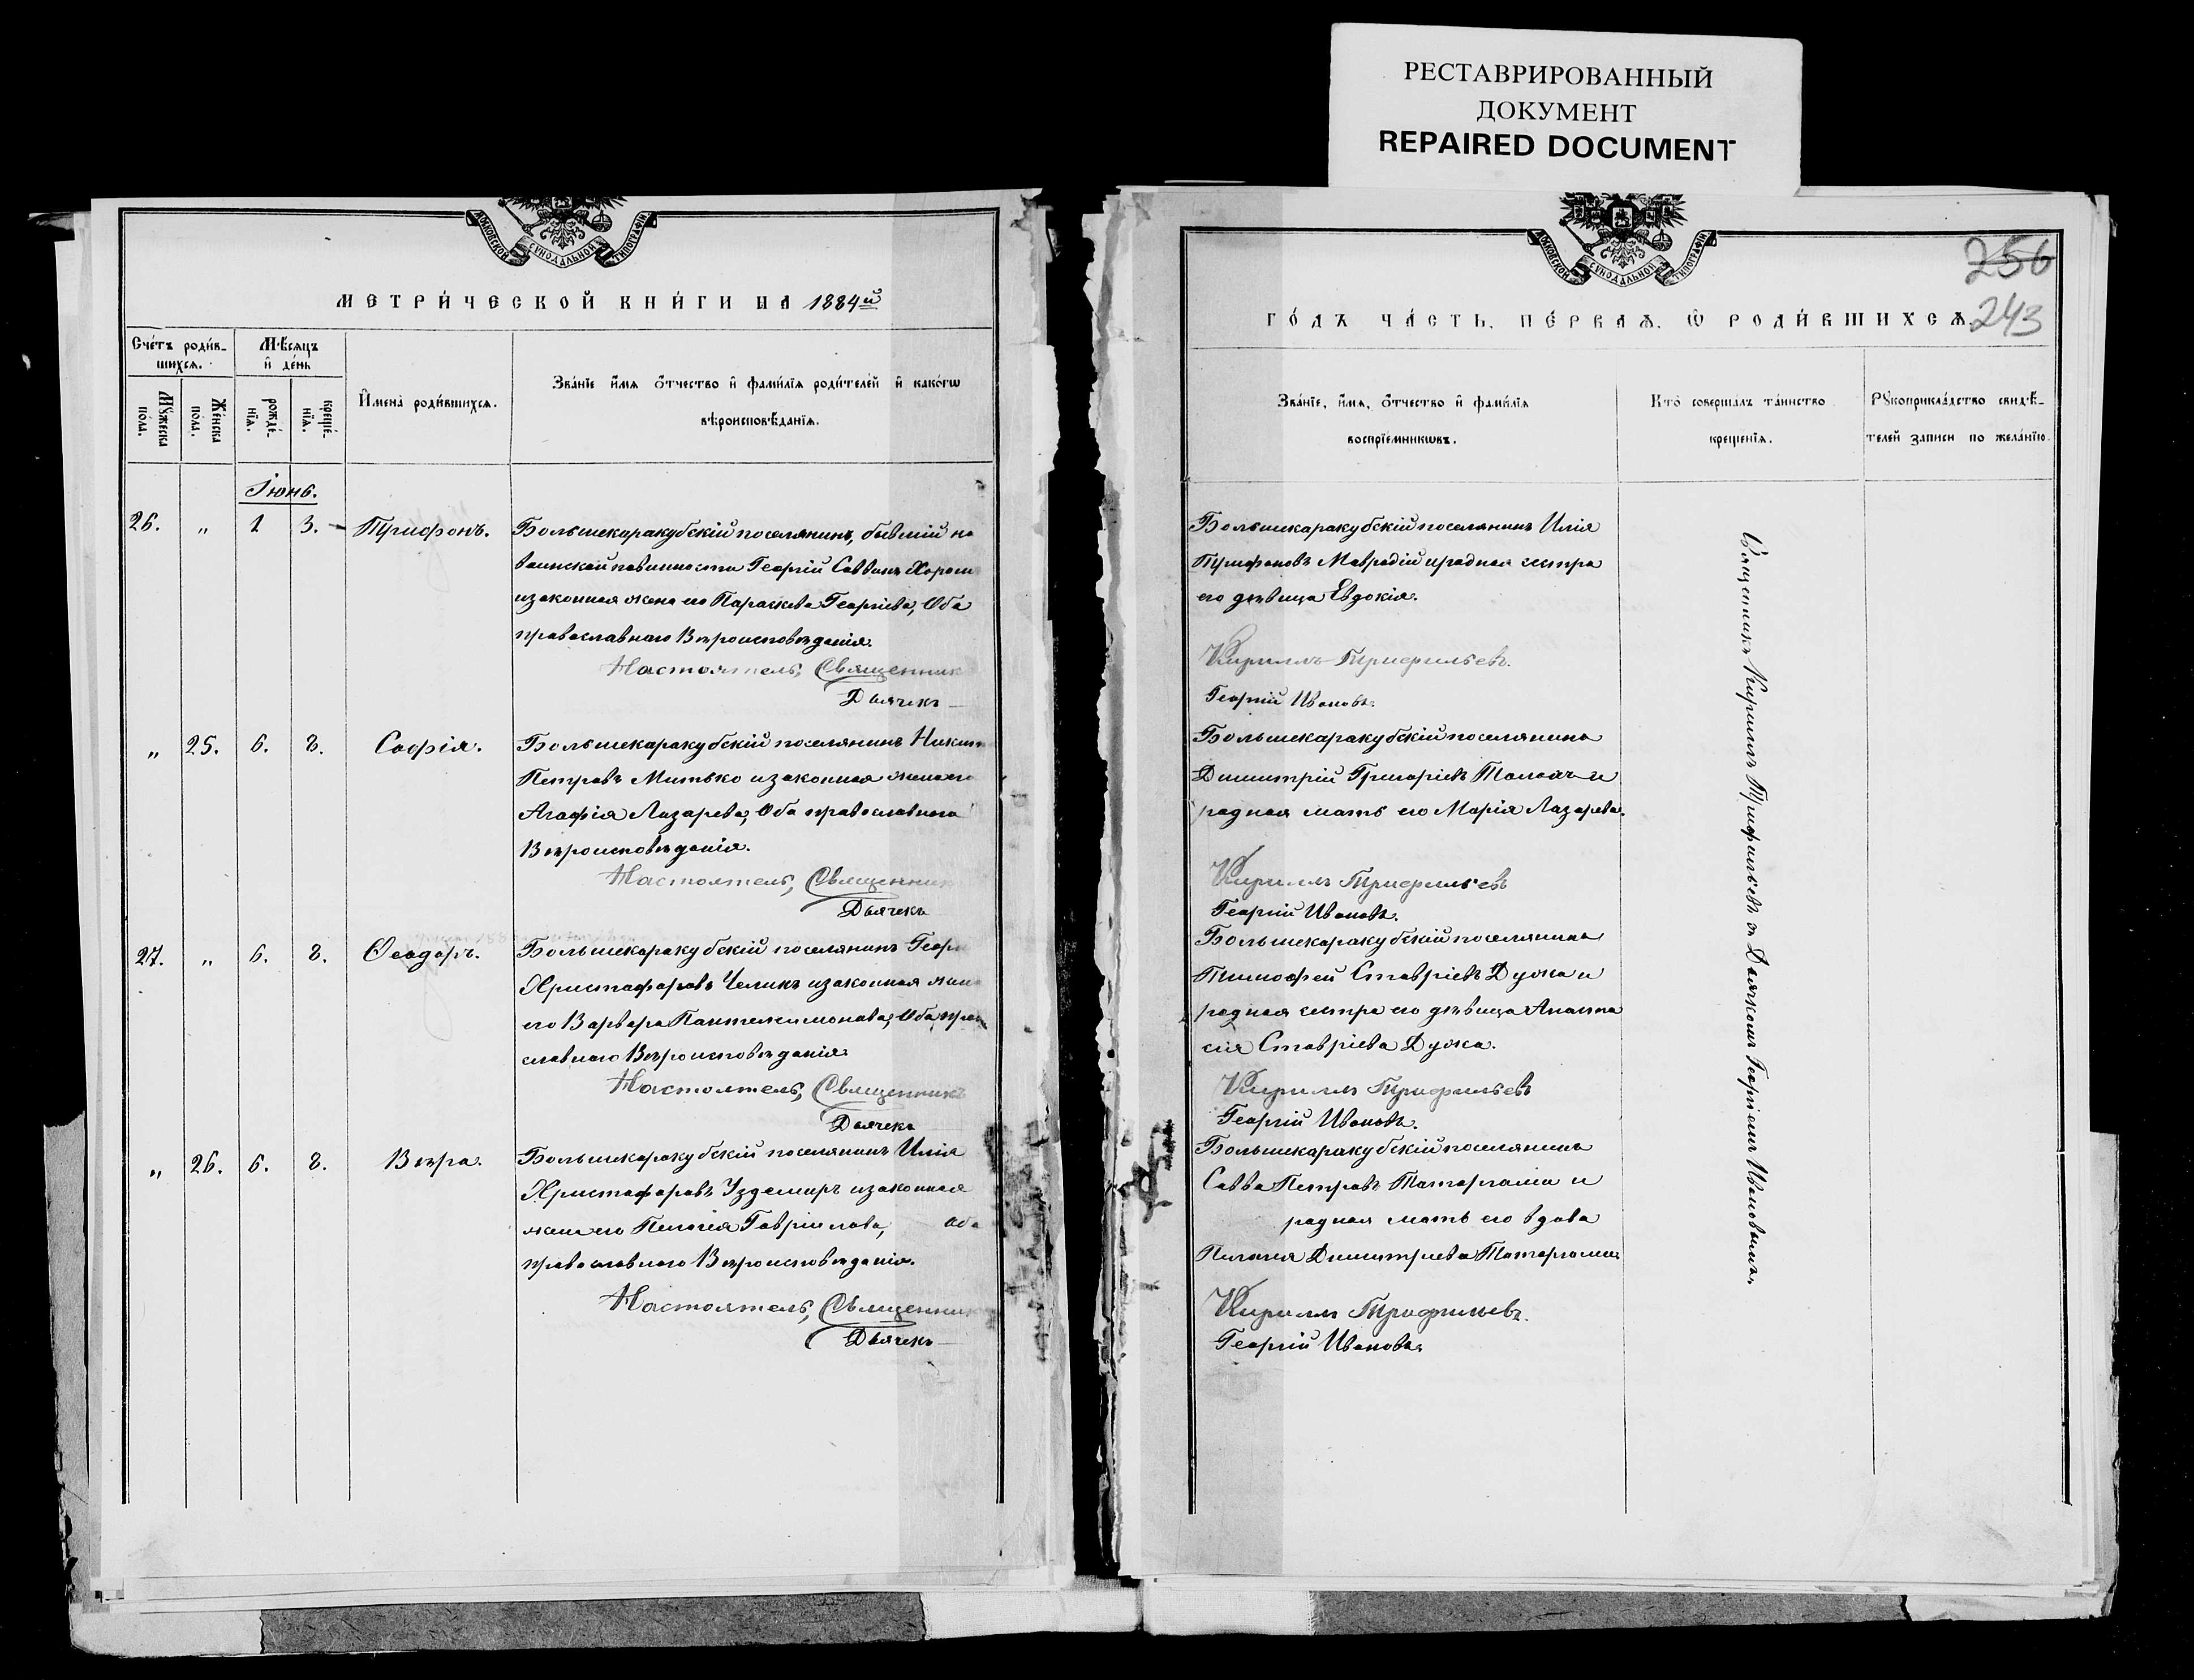 РЕСТАВРИРОВАННЫЙ
ДОКУМЕНТ
REPAIRED DOCUMENT
МОСКОВСКОЙ СѴНОДАЛЬНОЙ ТИПОГРАФІИ
МЕТРИ́ЧЕСКОЙ КНИ́ГИ НА 1884й
Сче́тъ роди́в-
шихсѧ.
Мѣсѧцъ
и҆ де́нь
Мꙋ́жеска
по́ла.
Же́нска
по́ла.
рожде́-
нїѧ.
креще́-
нїѧ.
И҆мена̀ роди́вшихсѧ.
Зва́нїе и҆́мѧ ѻ҆́тчество и҆ фами́лїѧ роди́телей и҆ како́гѡ
вѣроисповѣ́данїѧ.
Іюнь.
26. „ 1 3. Трифонъ.
Большекаракубскій поселянинъ, бывшій на
воинской повинности Георгій Саввинъ
и законная жена его Параскева Георгіева, Оба
православнаго Вѣроисповѣданія.
Настоятель, Священник
Дьячекъ
„ 25. 6. 8. Софія.
Большекаракубскій поселянинъ Никит
Петровъ Митько и законная жена его
Агафія Лазарева, Оба православнаго
Вѣроисповѣданія.
Настоятель, Священник
Дьячекъ
27. „ 6. 8. Ѳеодоръ.
Большекаракубскій поселянинъ Георг
Христофоровъ Челикъ и законная жен
его Варвара Пантелеимонова, Оба прав
славнаго Вѣроисповѣданія.
Настоятель, Священникъ
Дьячекъ
„ 26. 6. 8. Вѣра.
Большекаракубскій поселянинъ Илія
Христофоровъ Уздемиръ и законная
жена его Пелагія Гавріилова, Оба
православнаго Вѣроисповѣданія.
Настоятель, Священник
Дьячекъ
МОСКОВСКОЙ СѴНОДАЛЬНОЙ ТИПОГРАФІИ
256
ГО́ДЪ ЧА́СТЬ ПЕ́РВАѦ. Ѿ РОДИ́ВШИХСѦ. 243
Зва́нїе, и҆́мѧ, ѻ҆́тчество и҆ фами́лїѧ
воспрїе́мникѡвъ.
Кто̀ соверша́лъ та́инство
креще́нїѧ.
Рꙋкоприкла́дство свидѣ́-
телей записи по жела́нїю.
Большекаракубскій поселянинъ Илія
Трифоновъ Мавродій и родная сестра
его дѣвица Евдокія.
Кириллъ Трифильевъ.
Георгій Ивановъ.
Большекаракубскій поселянинъ
Димитрій Григоріевъ и
родная мать его Марія Лазарева.
Кириллъ Трифильевъ
Георгій Ивановъ.
Большекаракубскій поселянинъ
Тимофей Ставріевъ Дужа и
родная сестра его дѣвица Анаста
сія Ставріева Дужа.
Кириллъ Трифильевъ
Георгій Ивановъ.
Большекаракубскій поселянинъ
Савва Петровъ и
родная мать его вдова
Пелагія Димитріева
Кириллъ Трифильевъ.
Георгій Ивановъ.
Священникъ Кириллъ Трифильевъ съ Дьячкомъ Георгіемъ Ивановымъ.